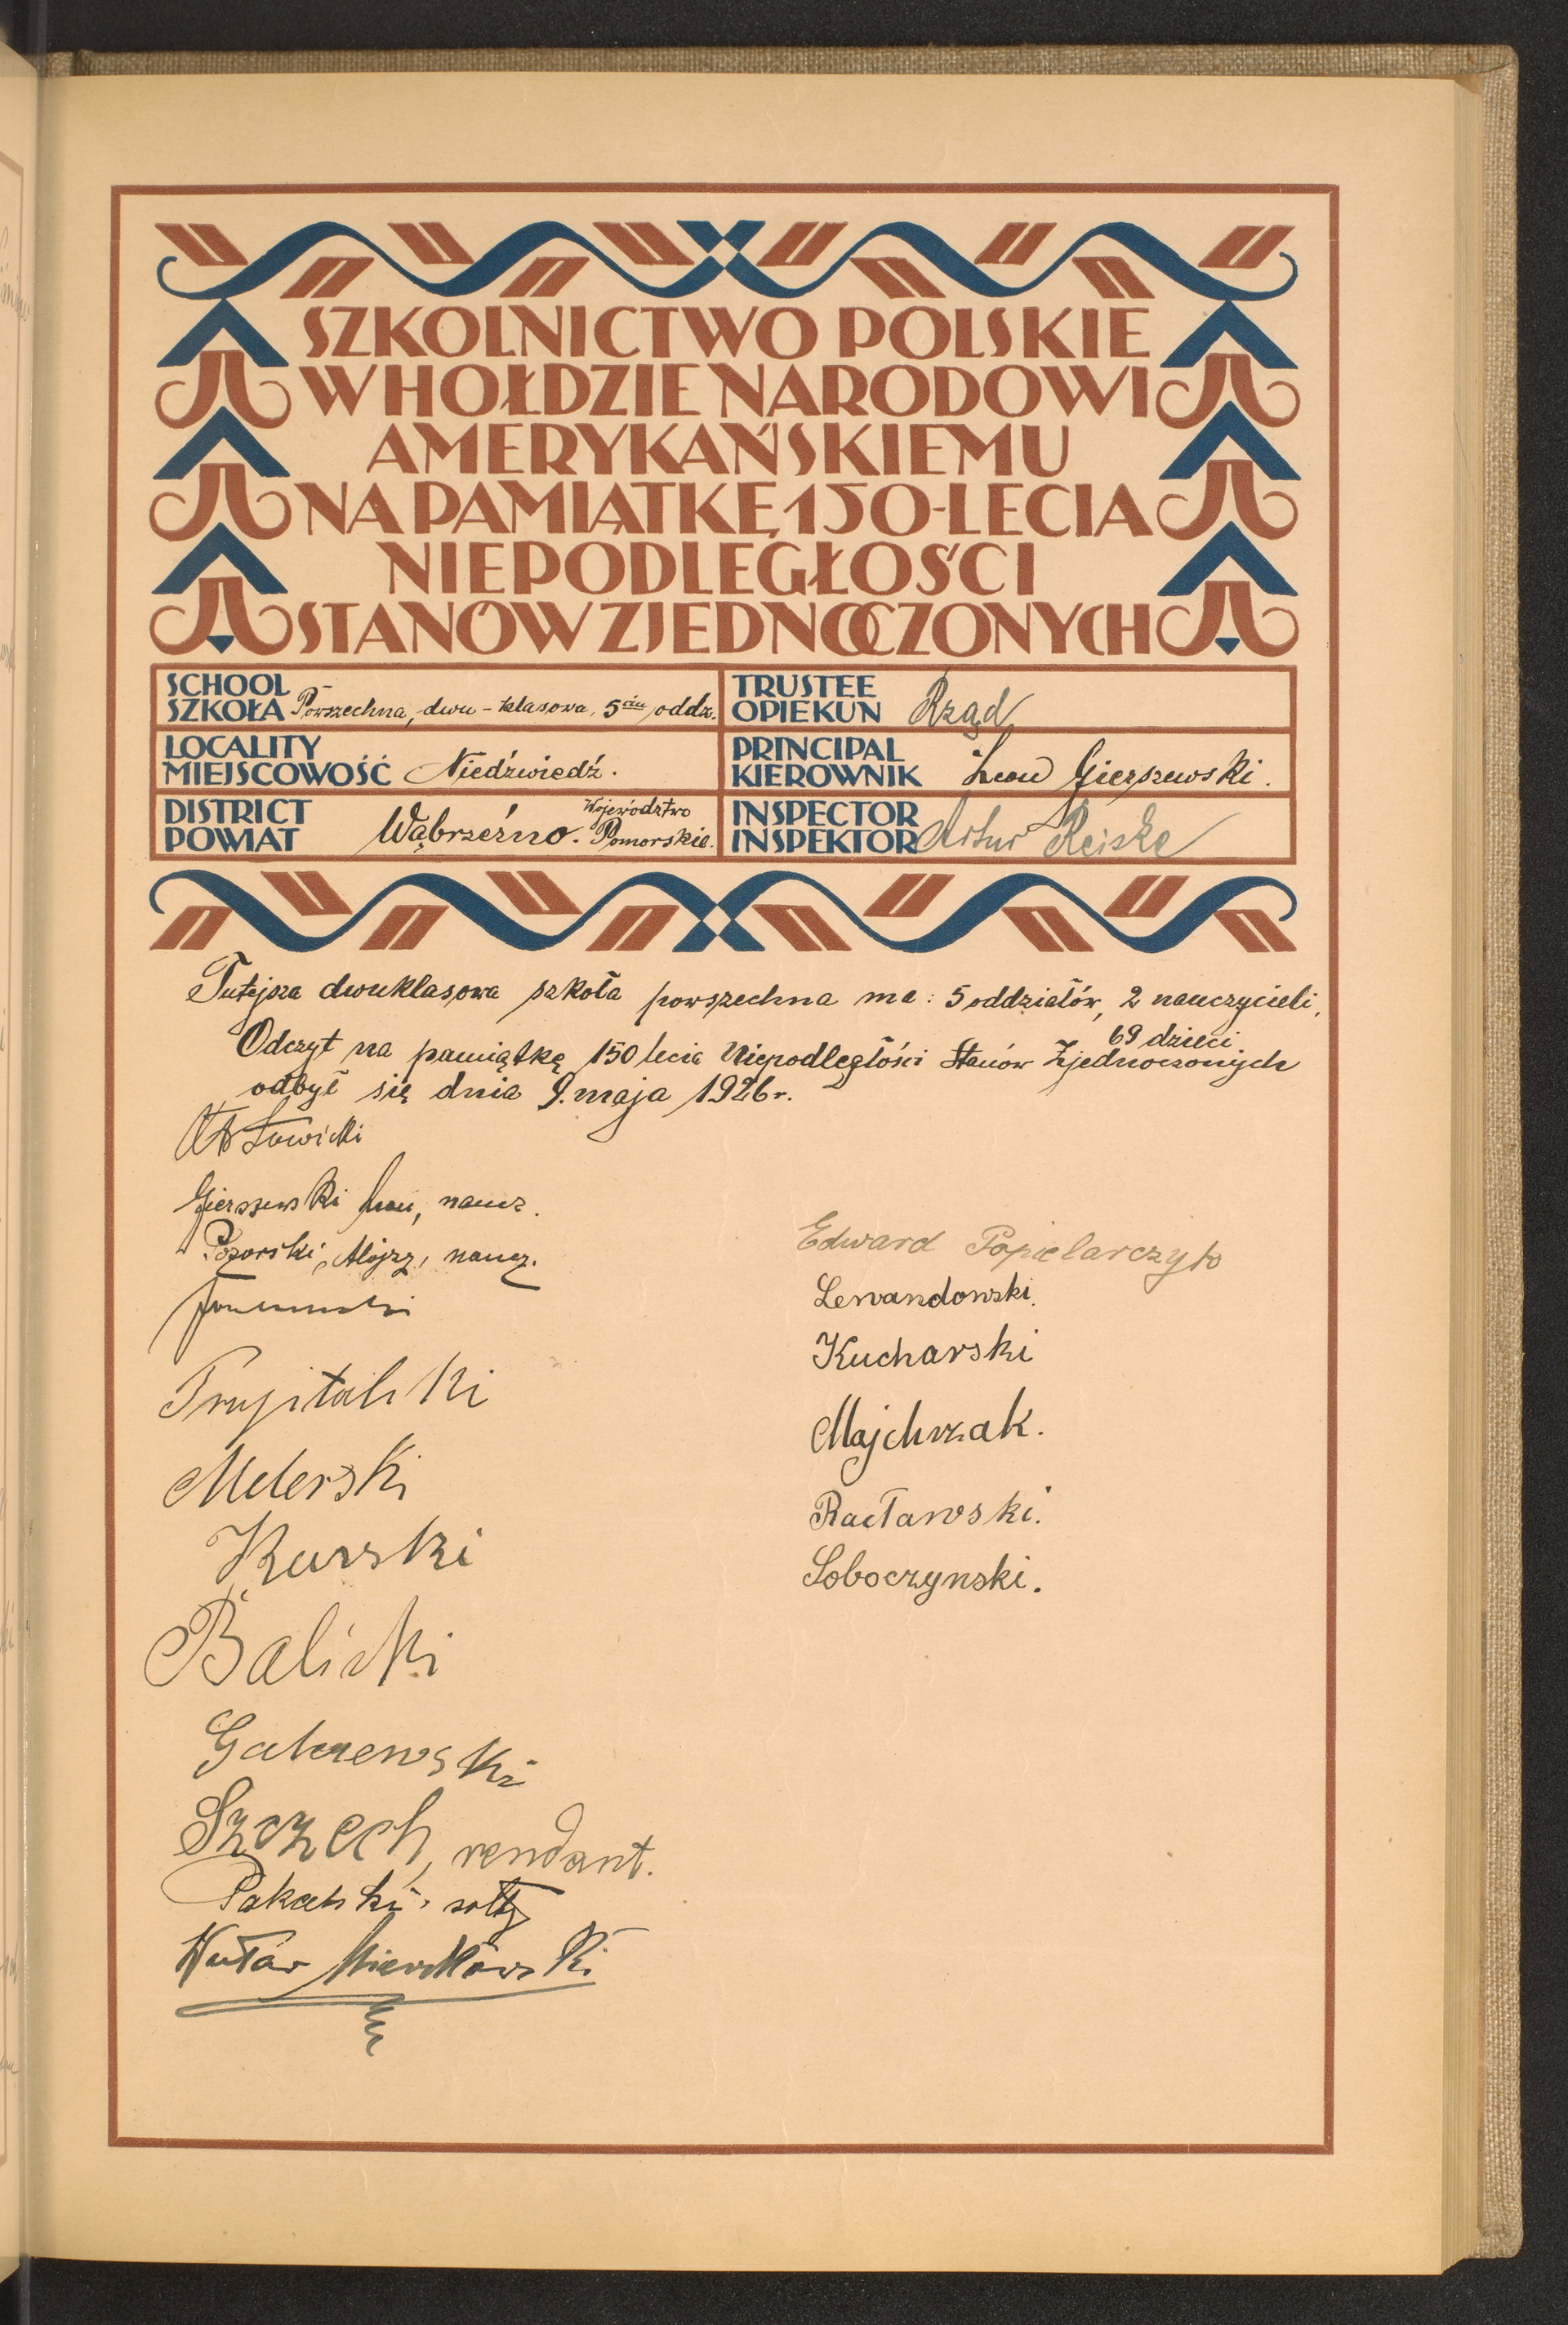 SZKOLNICTWO POLSKIE
W HOŁDZIE NARODOWI
AMERYKAŃSKIEMU
NA PAMIĄTKĘ 150-LECIA
NIEPODLEGŁOŚCI
STANÓW ZJEDNOCZONYCH
SCHOOL
SZKOŁA Powszechna, dwu-klasowa, 5ciu oddz.
TRUSTEE
OPIEKUN Rząd
LOCALITY
MIEJSCOWOŚĆ Niedźwiedź.
PRINCIPAL
KIEROWNIK Leon Gierszewski.
DISTRICT
POWIAT Wąbrzeźno. Województwo Pomorskie.
INSPECTOR
INSPEKTOR Artur Reiske
Tutejsza dwuklasowa szkoła powszechna ma: 5 oddziałów, 2 nauczycieli,
69 dzieci
Odczyt na pamiątkę 150 lecia Niepodległości Stanów Zjednoczonych
odbył się dnia 9. maja 1926 r.
Gierszewski Leon, naucz.
Pozorski, Alojzy, naucz.
Melerski
Kurski
Balicki
Szczech, rendant.
Edward Popielarczyk
Lewandowski.
Kucharski
Majchrzak.
Racławski.
Soboczynski.